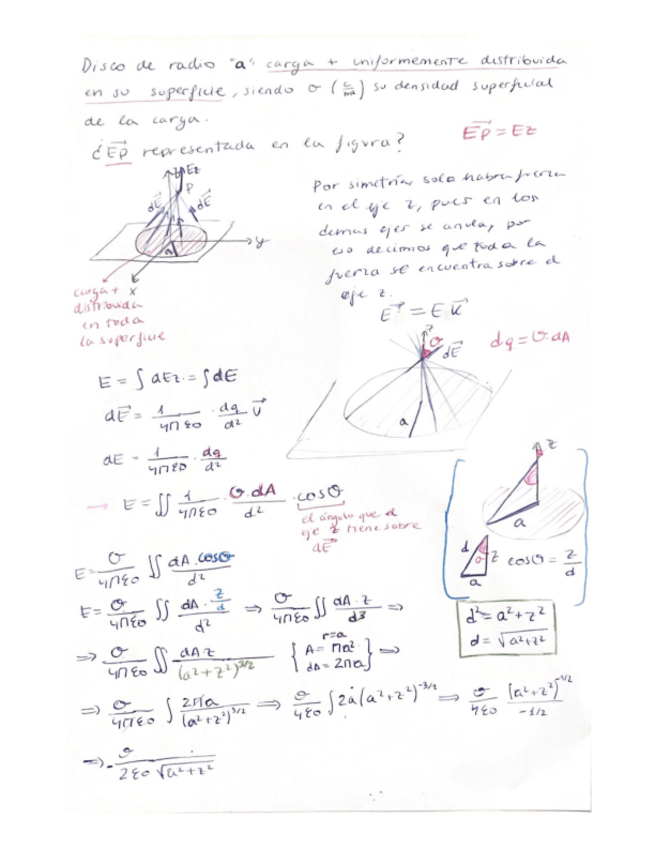 Disco de radio "a" carga + uniformemente distribuida
en su superficie, siendo σ (c/m²) su densidad superficial
de la carga.
¿EP⃗ representada en la figura?
EP⃗ = Ez
Ez
P
dE⃗
dE⃗
y
a
x
carga +
distribuida
en toda
la superficie
Por simetría, solo habra fuerza
en el eje z, pues en los
demas ejes se anula, por
eso decimos que toda la
fuerza se encuentra sobre el
eje z.
E⃗ = E K⃗
z
θ
dE⃗
a
dq = σ·dA
E = ∫ dEz = ∫ dE
dE⃗ = 1/4πε0 · dq/d² u⃗
dE = 1/4πε0 · dq/d²
→ E = ∬ 1/4πε0 · σ·dA/d² · cosθ
el ángulo que el
eje z tiene sobre
dE⃗
z
a
d
θ
z
a
cosθ = z/d
E = σ/4πε0 ∬ dA·cosθ/d²
E = σ/4πε0 ∬ dA·z/d/d² ⇒ σ/4πε0 ∬ dA·z/d³ ⇒
d² = a²+z²
d = √a²+z²
⇒ σ/4πε0 ∬ dA z/(a²+z²)^3/2 { r=a A = πa² dA = 2πa } ⇒
⇒ σ/4πε0 ∫ 2πa/(a²+z²)^3/2 ⇒ σ/4ε0 ∫ 2a(a²+z²)^-3/2 ⇒ σ/4ε0 [a²+z²]^-1/2/-1/2
⇒ - σ/2ε0 √a²+z²